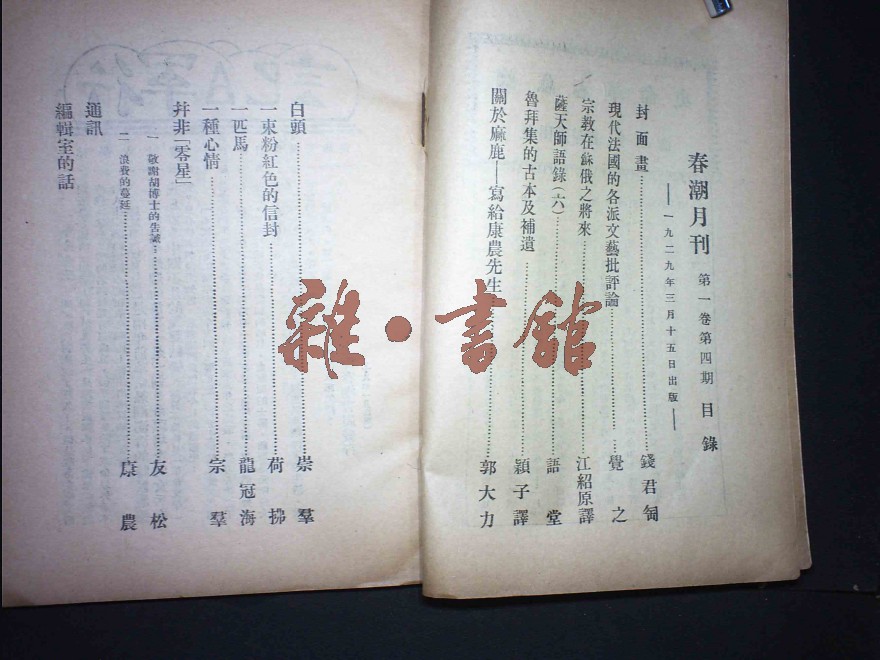 春潮月刊 第一卷第四期 目錄
——一九二九年三月十五日出版——
封面畫………錢君匋
現代法國的各派文藝批評論………覺之
宗教在蘇俄之將來………江紹原譯
薩天師語錄(六)………語堂
魯拜集的古本及補遺………穎子譯
關於麻鹿——寫給康農先生………郭大力
白頭………崇羣
一束粉紅色的信封………荷拂
一匹馬………龍冠海
一種心情………宗羣
幷非「零星」
一 敬謝胡博士的告誡………友松
二 浪費的蔓延………康農
通訊
編輯室的話
雜·書館